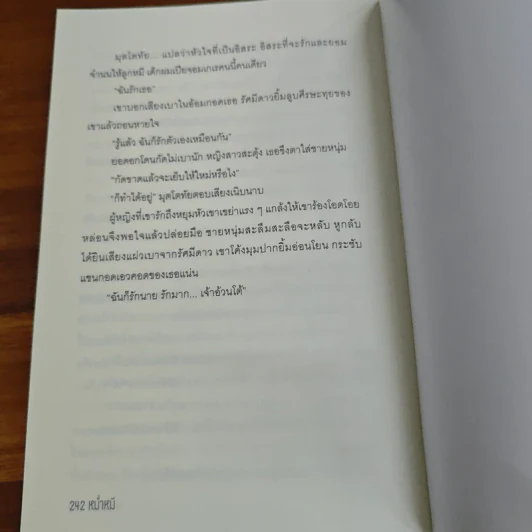 มุตโตทัย... แปลว่าหัวใจที่เป็นอิสระ อิสระที่จะรักและยอม
จำนนให้ลูกหมี เด็กผมเปียจอมเกเรคนนี้คนเดียว
"ฉันรักเธอ"
เขาบอกเสียงเบาในอ้อมกอดเธอ รัศมีดาวยิ้มลูบศีรษะทุยของ
เขาแล้วถอนหายใจ
"รู้แล้ว ฉันก็รักตัวเองเหมือนกัน"
ยอดอกโดนกัดไม่เบานัก หญิงสาวสะดุ้ง เธอขึงตาใส่ชายหนุ่ม
"กัดขาดแล้วจะเย็บให้ใหม่หรือไง"
"ก็ทำได้อยู่" มุตโตทัยตอบเสียงเนิบนาบ
ผู้หญิงที่เขารักถึงหยุมหัวเขาเขย่าแรง ๆ แกล้งให้เขาร้องโอดโอย
หล่อนจึงพอใจแล้วปล่อยมือ ชายหนุ่มสะลึมสะลือจะหลับ หูกลับ
ได้ยินเสียงแผ่วเบาจากรัศมีดาว เขาโค้งมุมปากยิ้มอ่อนโยน กระชับ
แขนกอดเอวคอดของเธอแน่น
"ฉันก็รักนาย รักมาก... เจ้าอ้วนโต้"
242 หม่ำหมี